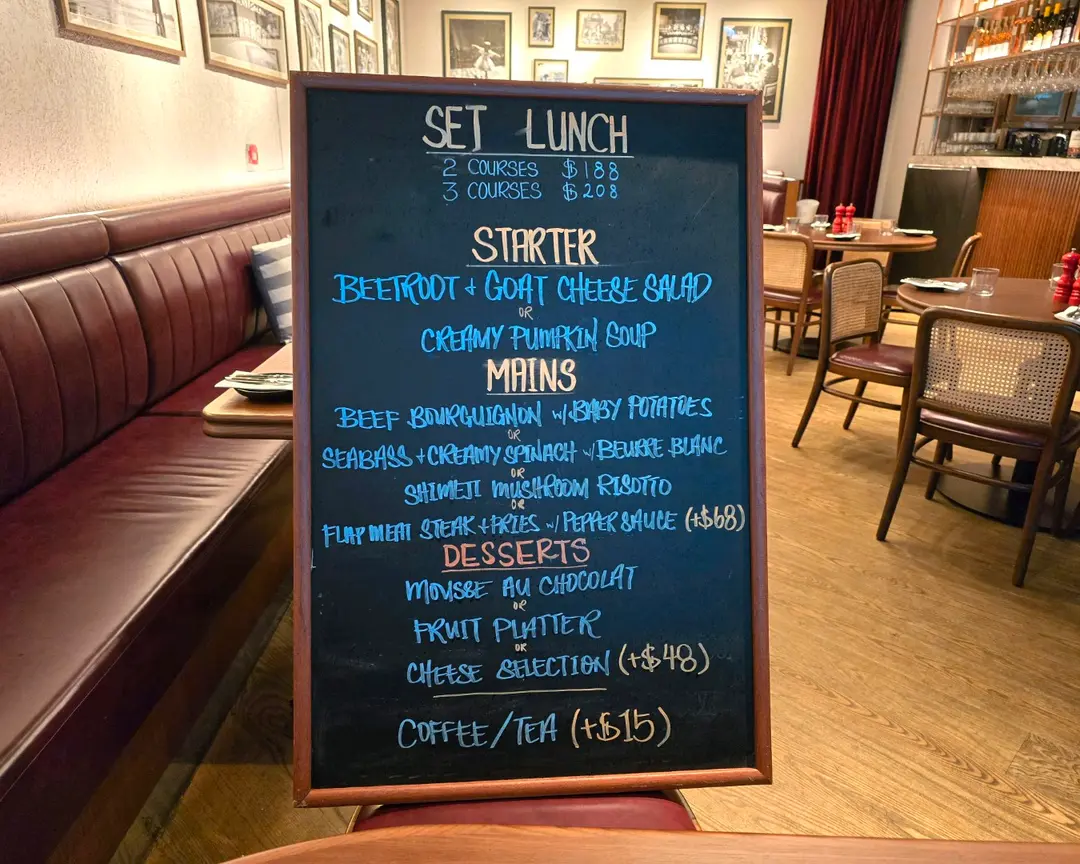 SET LUNCH
2 COURSES $188
3 COURSES $208
STARTER
BEETROOT + GOAT CHEESE SALAD
OR
CREAMY PUMPKIN SOUP
MAINS
BEEF BOURGUIGNON w/ BABY POTATOES
OR
SEABASS + CREAMY SPINACH w/ BEURRE BLANC
OR
SHIMEJI MUSHROOM RISOTTO
OR
FLAP MEAT STEAK + FRIES w/ PEPPER SAUCE (+$68)
DESSERTS
MOUSSE AU CHOCOLAT
OR
FRUIT PLATTER
OR
CHEESE SELECTION (+$48)
COFFEE/TEA (+$15)